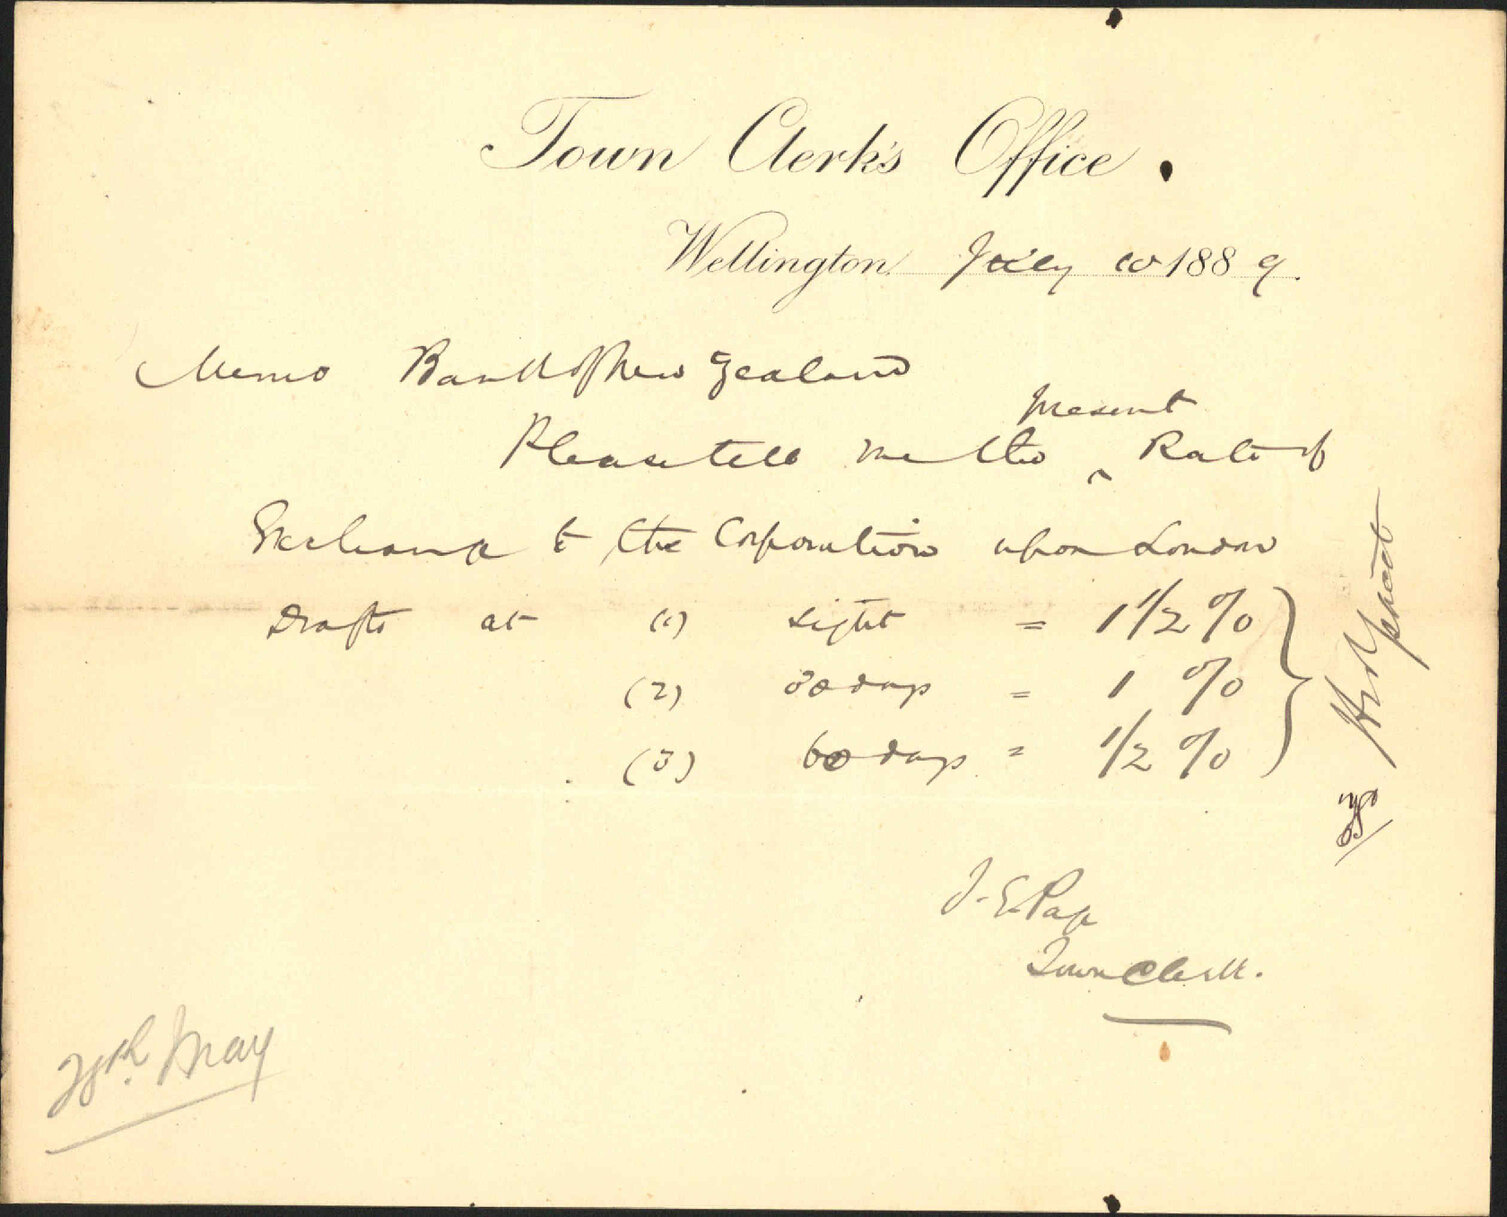 Town Clerk's Office.
Wellington July 10 1889.
Memo Bank of New Zealand
present
Please tell me the ^ Rate of
Exchange to the Corporation upon London
Drafts at (1) sight = 1 1/2 %
(2) 30 days = 1 %
(3) 60 days = 1/2 %
J. E. Page
Town Clerk.
28th May